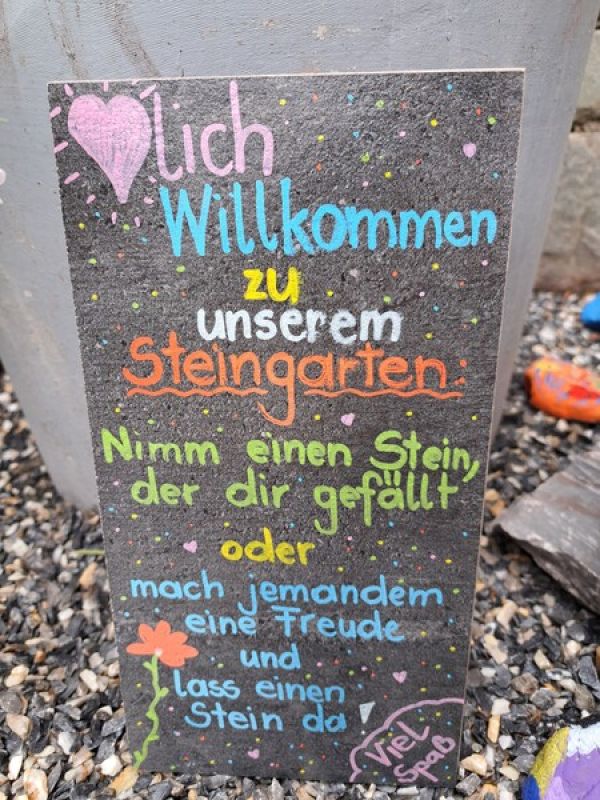 ♥lich
Willkommen
zu
unserem
Steingarten:
Nimm einen Stein,
der dir gefällt
oder
mach jemandem
eine Freude
und
lass einen
Stein da!
Viel
Spaß